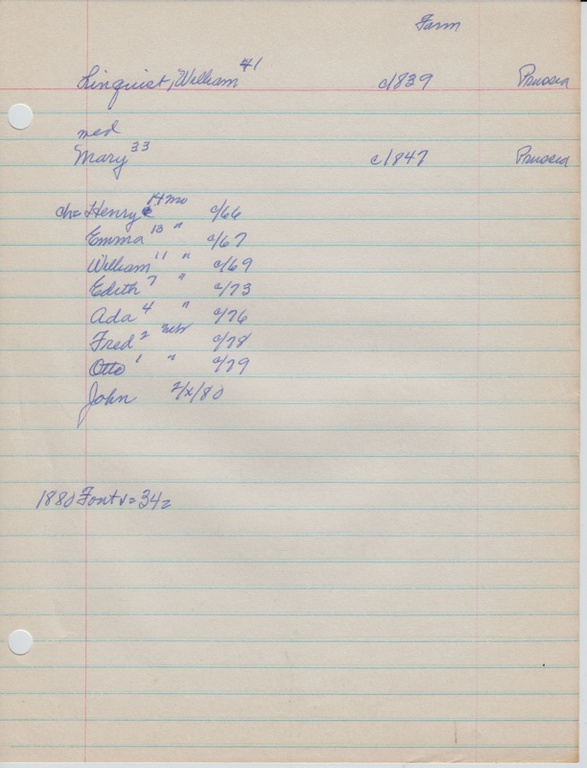 Farm
Linquist, William 41 c1839 Prussia
med
Mary 33 c1847 Prussia
ch= Henry 14 mo c/66
Emma 13 " c/67
William 11 " c/69
Edith 7 " c/73
Ada 4 " c/76
Fred 2 c/78
Otto 1 " c/79
John 2/x/80
1880 Font v= 34=